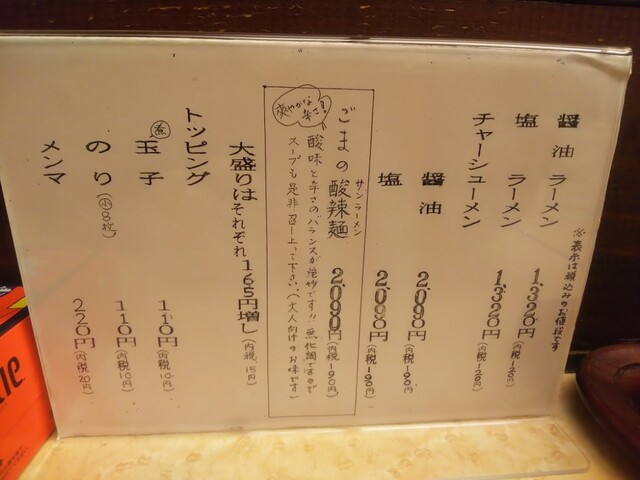 ※表示は税込みのお値段です
醤油ラーメン 1,320円(内税120円)
塩ラーメン 1,320円(内税120円)
チャーシューメン
醤油 2,090円(内税190円)
塩 2,090円(内税190円)
爽やかな辛さ!
ごまの酸辣麺 2,090円(内税190円)
サンラーメン
酸味と辛さのバランスが絶妙です!! 無化調ですので
スープも是非召し上って下さい。(大人向けのお味です)
大盛りはそれぞれ165円増し(内税15円)
トッピング
煮玉子 110円(内税10円)
のり(小8枚) 110円(内税10円)
メンマ 220円(内税20円)